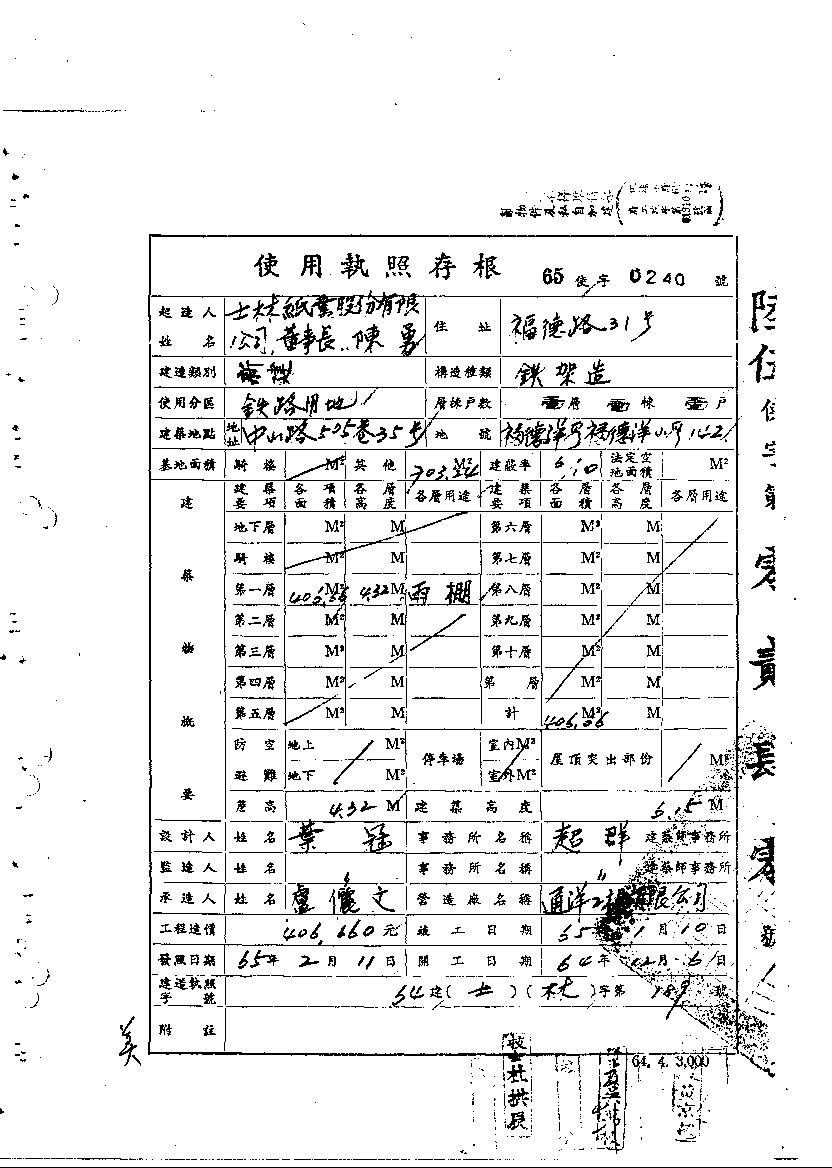 使用執照存根 65使字0240號
起造人姓名 士林紙業股份有限公司 董事長 陳勇 住址 福德路31號
建造類別 構造種類 鉄架造
使用分區 鉄路用地 層棟戶數 壹層 壹棟 壹戶
建築地點 地址 中山路505巷35号 地號 福德洋段福德洋小段142
基地面積 騎樓 M² 其他 703.24 M² 建蔽率 6/10 法定空地面積 M²
建築物概要 建築要項 各項面積 各層高度 各層用途 建築要項 各層面積 各層高度 各層用途
地下層 M² M 第六層 M² M
騎樓 M² M 第七層 M² M
第一層 406.66 M² 4.32 M 雨棚 第八層 M² M
第二層 M² M 第九層 M² M
第三層 M² M 第十層 M² M
第四層 M² M 第 層 M² M
第五層 M² M 計 M² M
防空避難 地上 M² 停車場 室內 M² 屋頂突出部份 M²
地下 M² 室外 M²
簷高 4.32 M 建築高度 6.15 M
設計人 姓名 葉冠 事務所名稱 超群 建築師事務所
監造人 姓名 〃 事務所名稱 〃 建築師事務所
承造人 姓名 盧儷文 營造廠名稱 通洋工程有限公司
工程造價 406,660元 竣工日期 65年1月10日
發照日期 65年2月11日 開工日期 64年12月6日
建造執照字號 64建(士)(林)字第189號
附註
64.4.3,000
技士杜拱辰